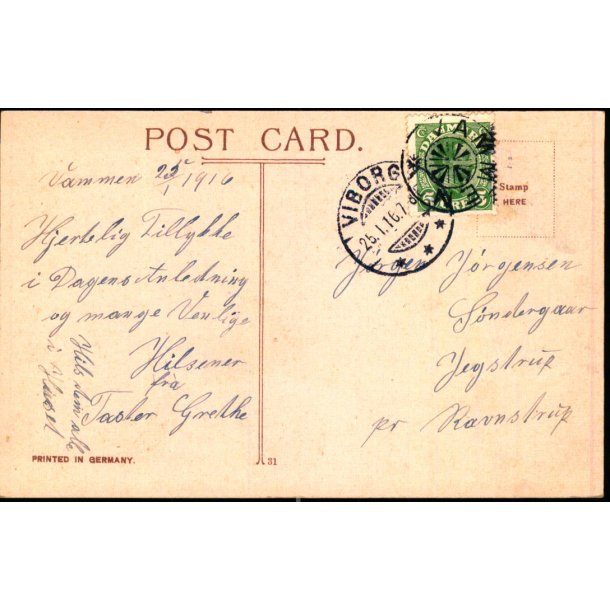 POST CARD.
Vammen 25/1 1916
Hjertelig Tillykke
i Dagens Anledning
og mange Venlige
Hilsener
fra
Taster Grethe
Hils dem alle
i Huset
PRINTED IN GERMANY.
31
VIBORG
25.1.16.7
VAMMEN
DANMARK
Stamp
HERE
Jørgen Jørgensen
Søndergaar
Jegstrup
pr Ravnstrup